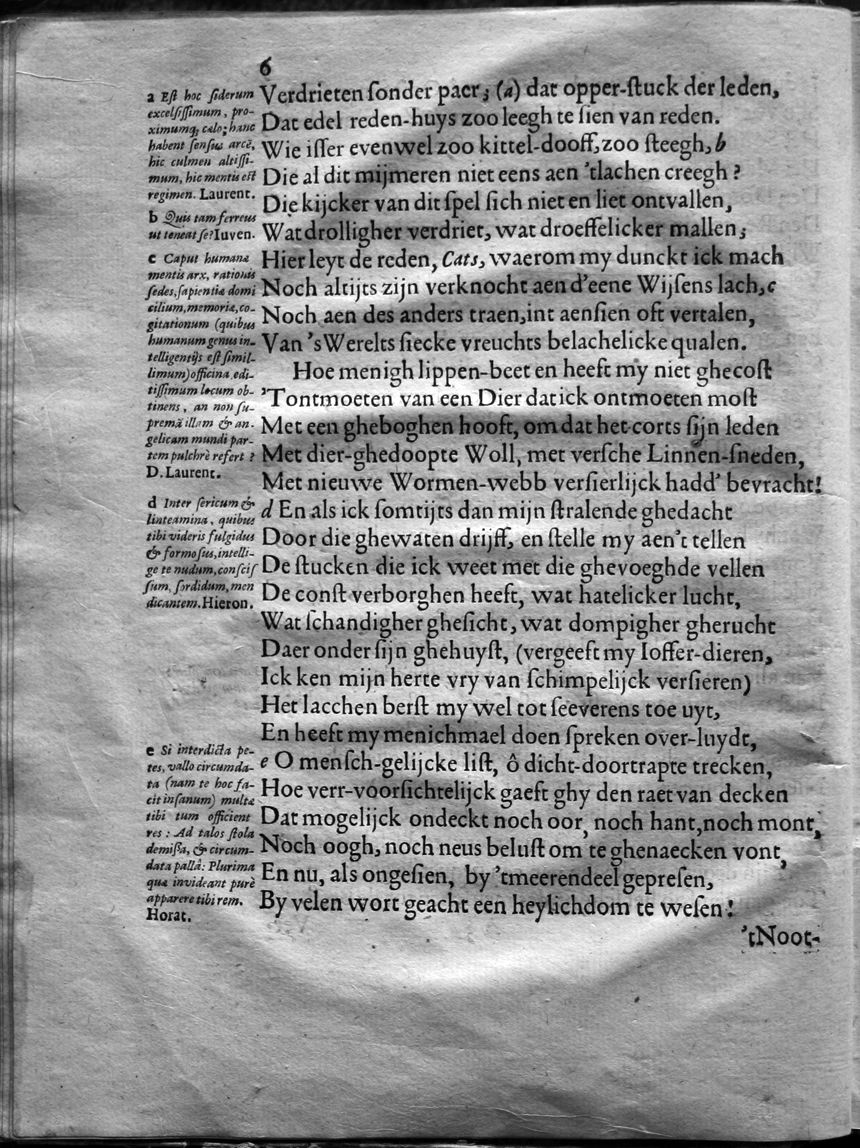 6
Verdrieten ſonder paer; (a) dat opper-ſtuck der leden,
Dat edel reden-huys zoo leegh te ſien van reden.
Wie iſſer evenwel zoo kittel-dooff, zoo ſteegh, b
Die al dit mijmeren niet eens aen 'tlachen creegh?
Die kijcker van dit ſpel ſich niet en liet ontvallen,
Wat drolligher verdriet, wat droeffelicker mallen;
Hier leyt de reden, Cats, waerom my dunckt ick mach
Noch altijts zijn verknocht aen d'eene Wijſens lach, c
Noch aen des anders traen, int aenſien oft vertalen,
Van 'sWerelts ſiecke vreuchts belachelicke qualen.
Hoe menigh lippen-beet en heeft my niet ghecoſt
'Tontmoeten van een Dier dat ick ontmoeten moſt
Met een gheboghen hooft, om dat het corts ſijn leden
Met dier-ghedoopte Woll, met verſche Linnen-ſneden,
Met nieuwe Wormen-webb verſierlijck hadd' bevracht!
d En als ick ſomtijts dan mijn ſtralende ghedacht
Door die ghewaten drijff, en ſtelle my aen't tellen
De ſtucken die ick weet met die ghevoeghde vellen
De conſt verborghen heeft, wat hatelicker lucht,
Wat ſchandigher gheſicht, wat dompigher gherucht
Daer onder ſijn ghehuyſt, (vergeeft my Ioffer-dieren,
Ick ken mijn herte vry van ſchimpelijck verſieren)
Het lacchen berſt my wel tot ſeeverens toe uyt,
En heeft my menichmael doen ſpreken over-luydt,
e O menſch-gelijcke liſt, ô dicht-doortrapte trecken,
Hoe verr-voorſichtelijck gaeft ghy den raet van decken
Dat mogelijck ondeckt noch oor, noch hant, noch mont,
Noch oogh, noch neus beluſt om te ghenaecken vont,
En nu, als ongeſien, by 'tmeerendeel gepreſen,
By velen wort geacht een heylichdom te weſen!
'tNoot-
a Eſt hoc ſiderum
excelſiſſimum, pro-
ximumq; cælo; hanc
habent ſenſus arcē,
hic culmen altiſſi-
mum, hic mentis eſt
regimen. Laurent.
b Quis tam ferreus
ut teneat ſe? Iuven.
c Caput humanæ
mentis arx, rationis
ſedes, ſapientiæ domi
cilium, memoriæ, co-
gitationum (quibus
humanum genus in-
telligentijs eſt ſimil-
limum) officina, edi-
tiſſimum locum ob-
tinens, an non ſu-
premā illam & an-
gelicam mundi par-
tem pulchrè refert?
D. Laurent.
d Inter ſericum &
linteamina, quibus
tibi videris fulgidus
& formoſus, intelli-
ge te nudum, conſciſ
ſum, ſordidum, men
dicantem. Hieron.
e Si interdicta pe-
tes, vallo circumda-
ta (nam te hoc fa-
cit inſanum) multæ
tibi tum officient
res: Ad talos ſtola
demiſſa, & circum-
data pallâ: Plurima
quæ invideant purè
apparere tibi rem.
Horat.